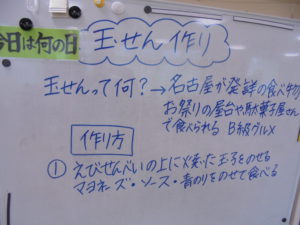 今日は何の日
玉せん作り
玉せんって何？→名古屋が発祥の食べ物
お祭りの屋台や駄菓子屋さん
で食べられる B級グルメ
作り方
① えびせんべいの上に焼いた玉子をのせる
マヨネーズ・ソース・青のりをのせて食べる